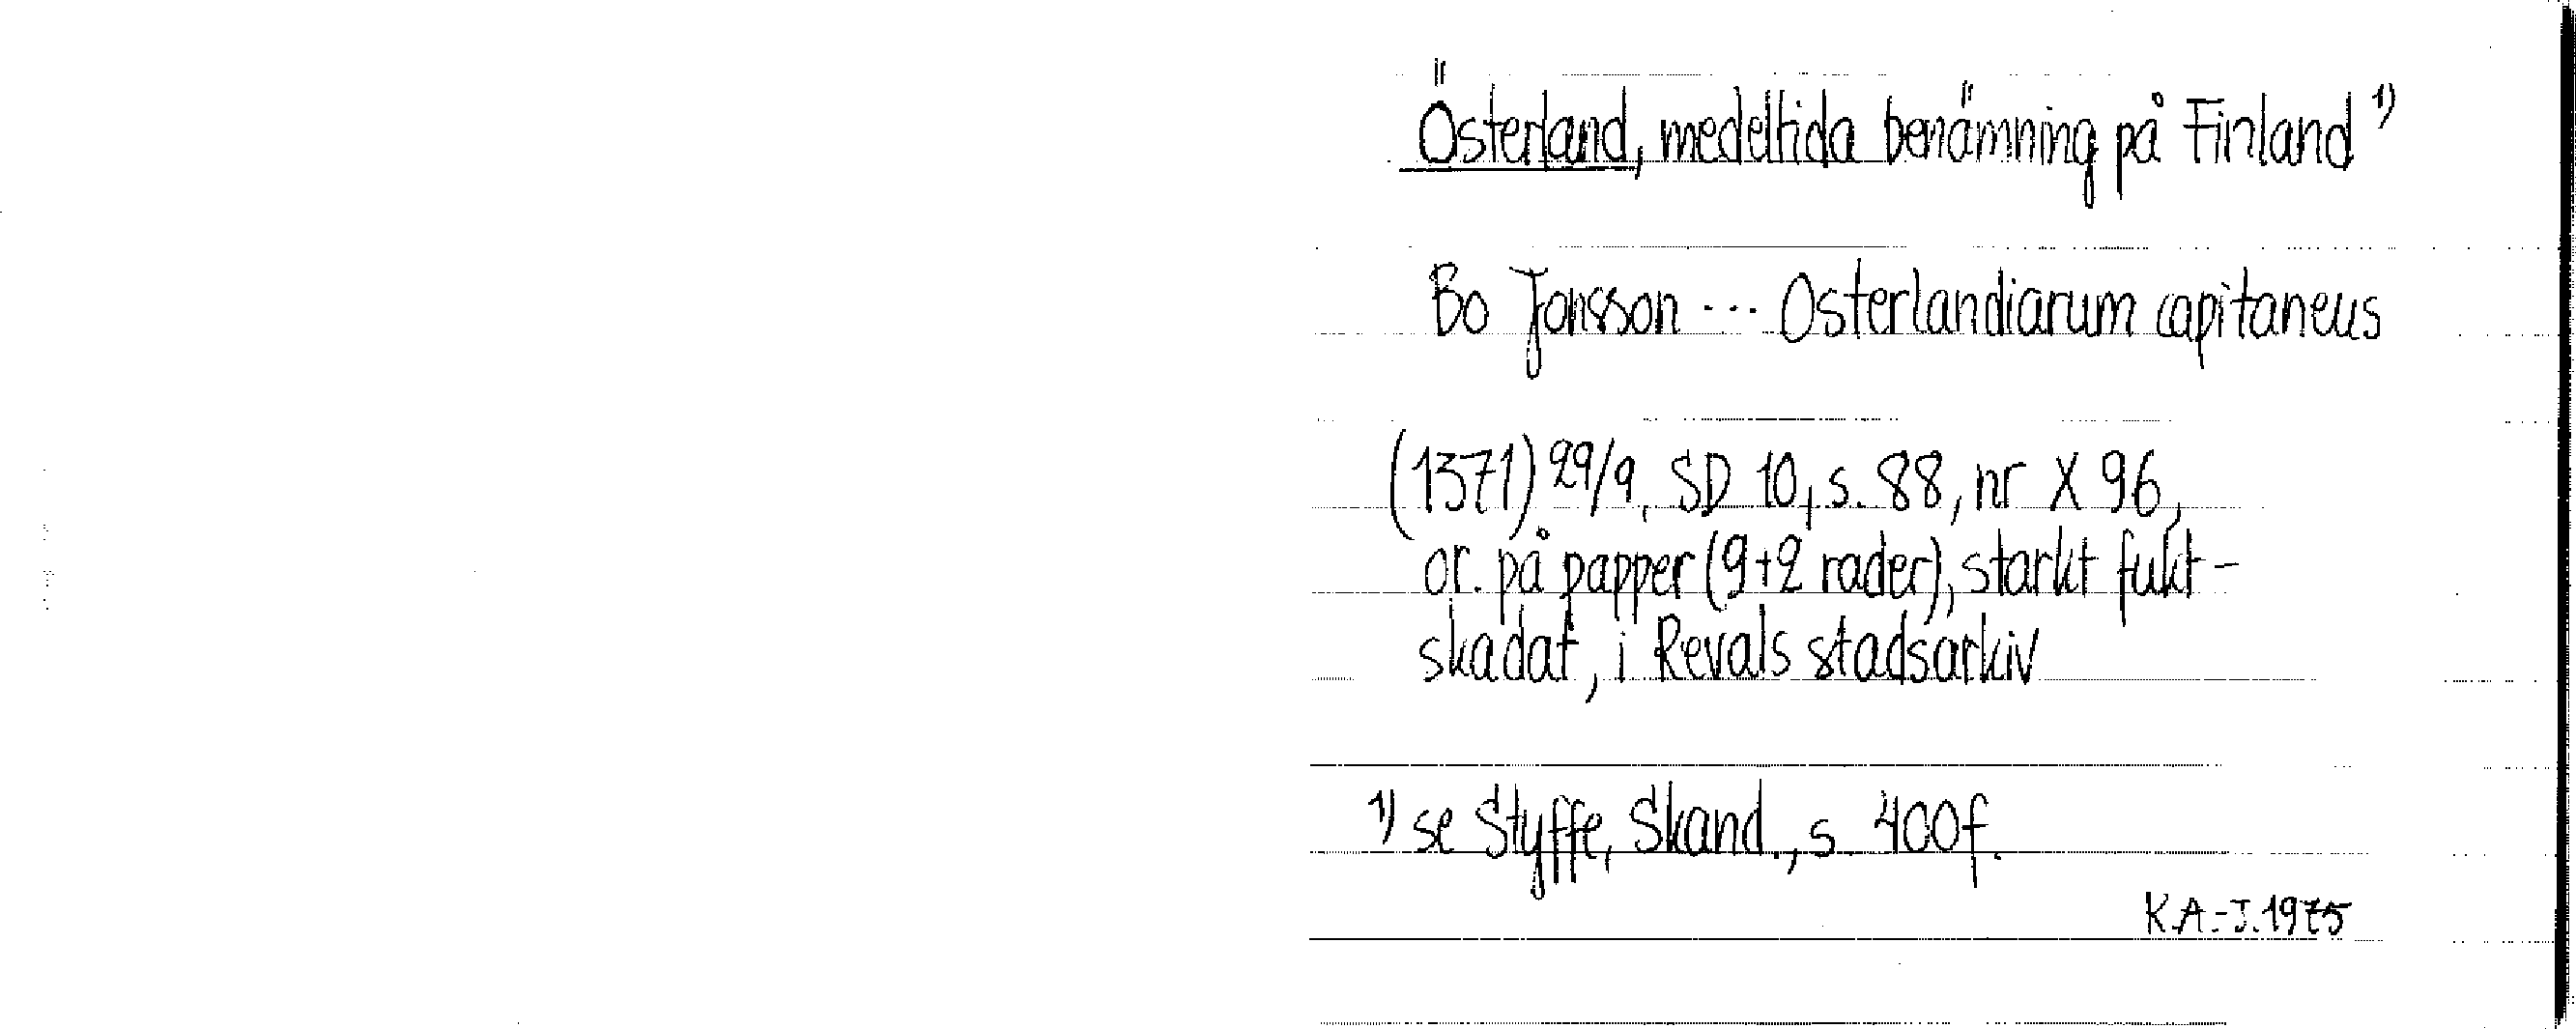 Österland, medeltida benämning på Finland 1)
Bo Jonsson ... Osterlandiarum capitaneus
(1371) 29/9, SD 10, s. 88, nr X 96,
or. på papper (9+2 rader), starkt fukt-
skadat, i Revals stadsarkiv
1) se Styffe, Skand., s. 400f.
K.A-J. 1975